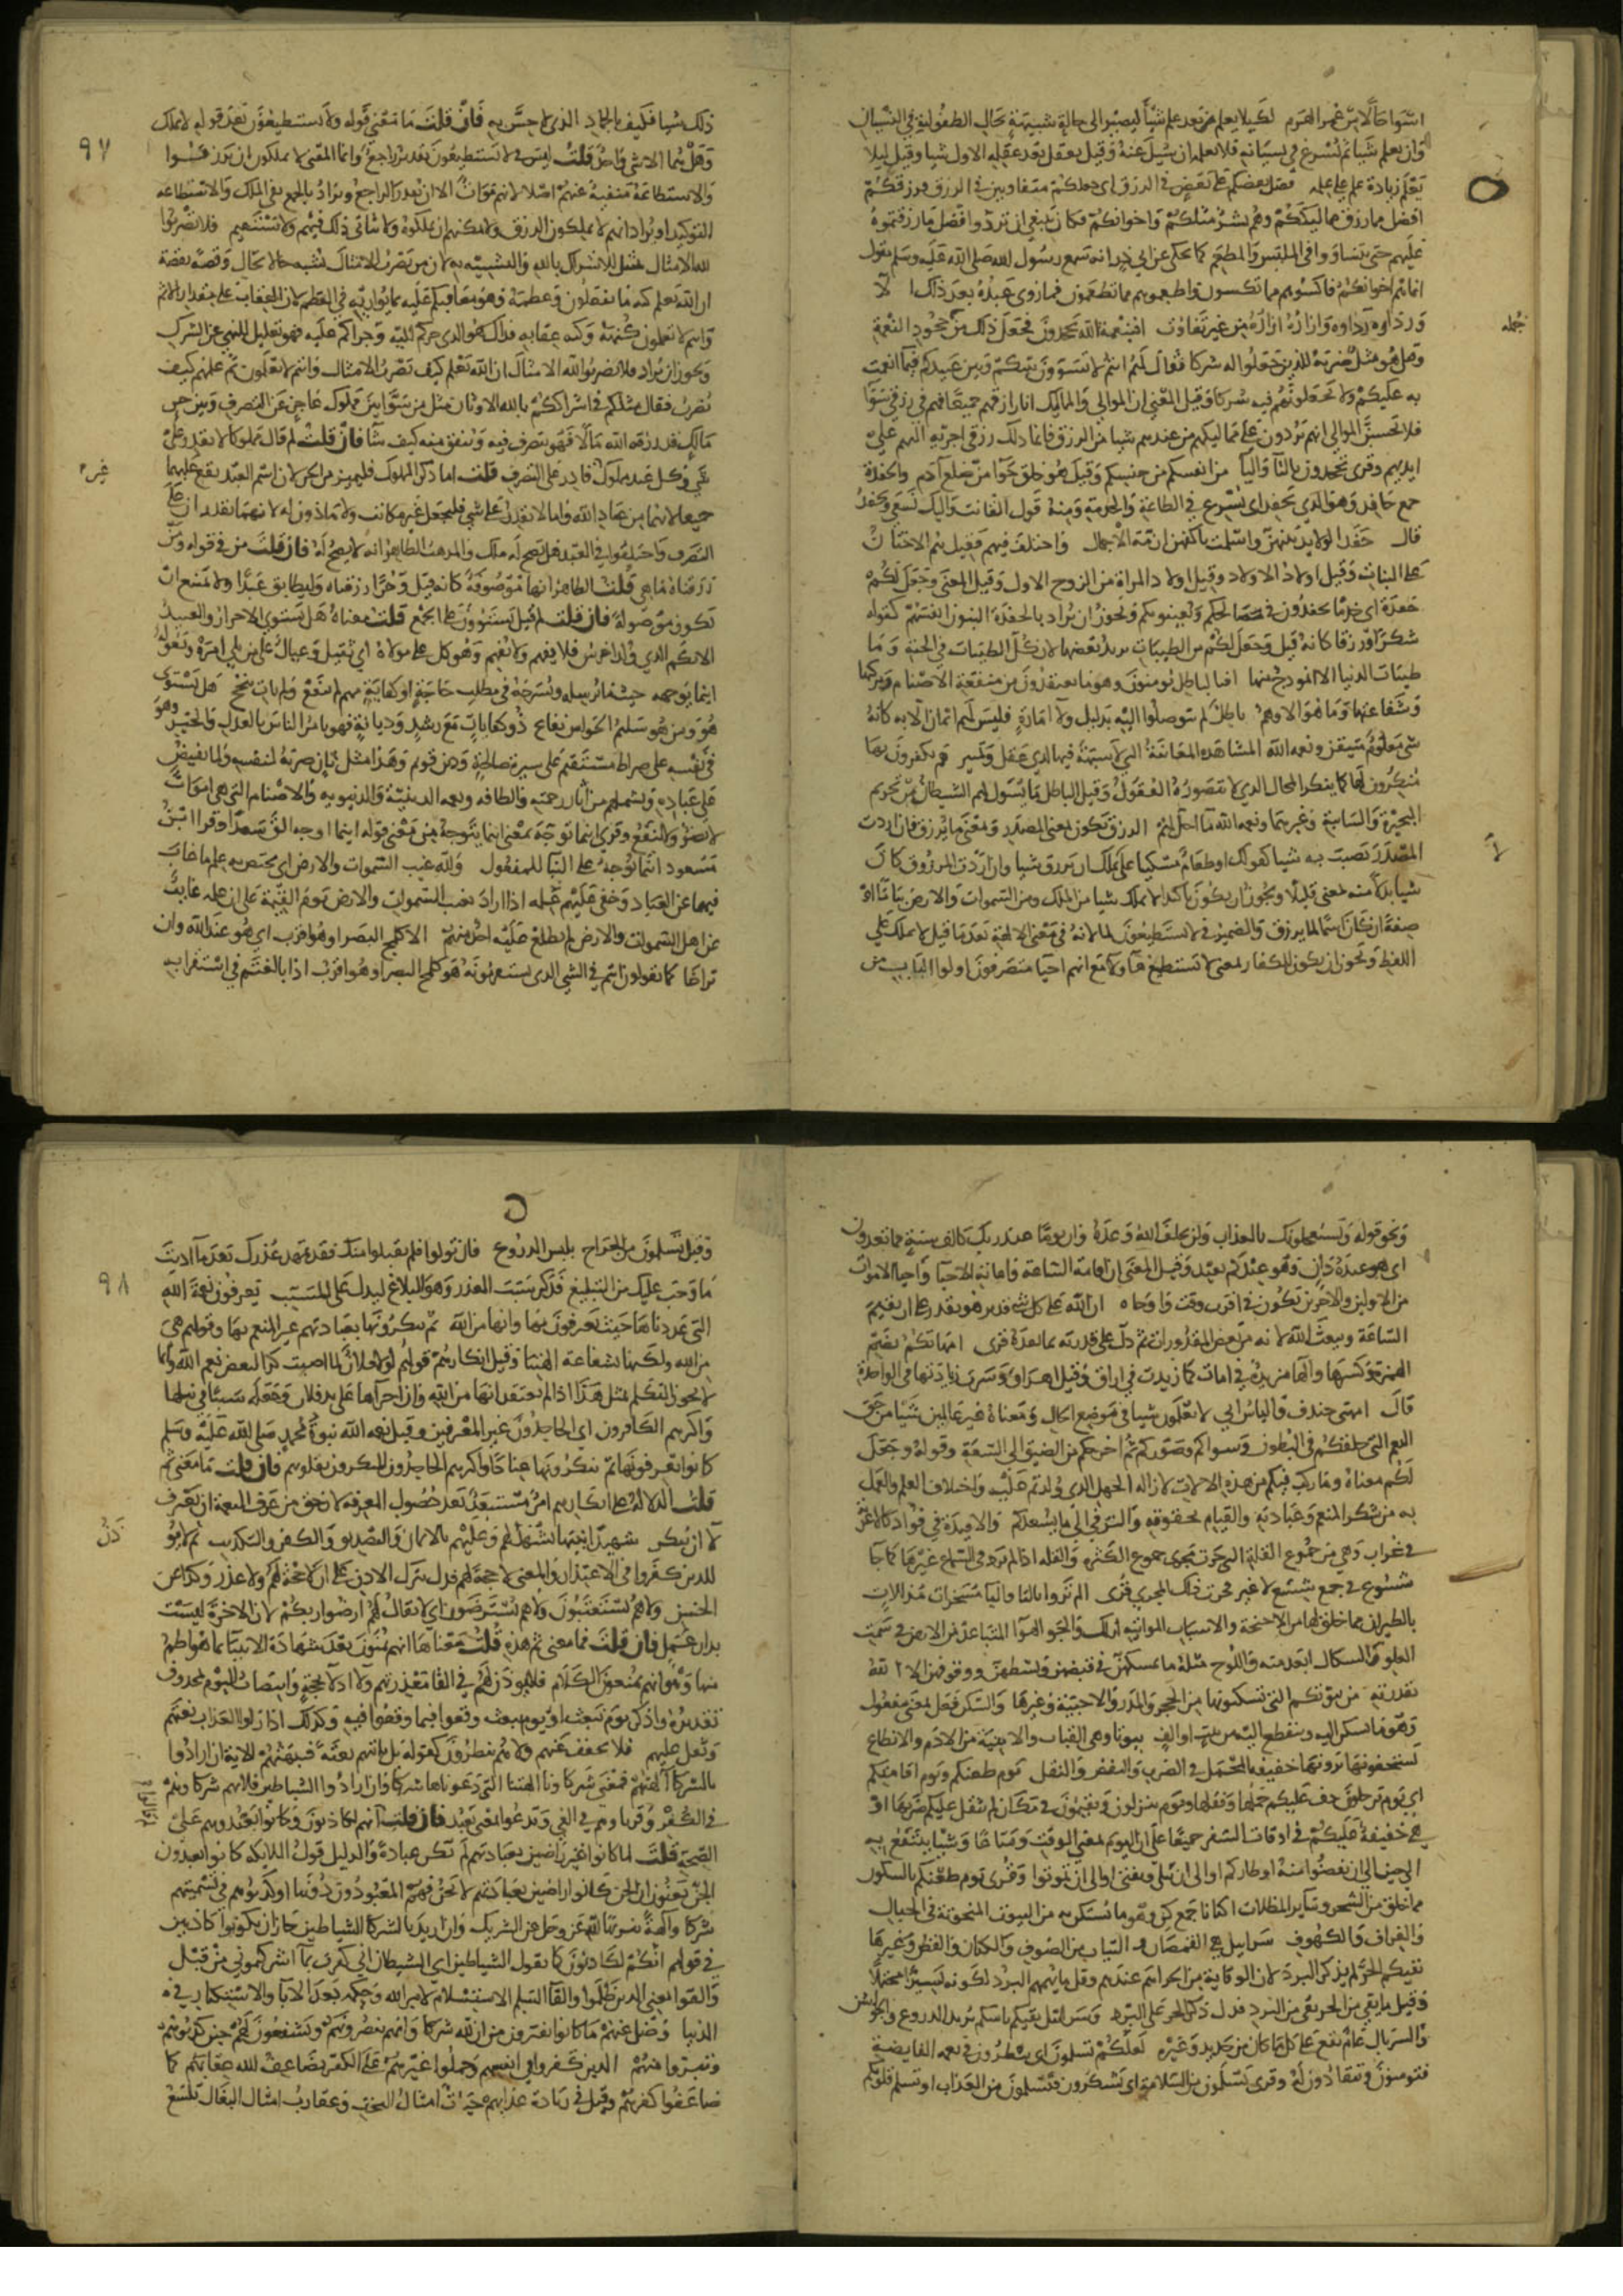 اسوا حالا من عمر الهرم لكيلا يعلم من بعد علم شيأ ليصير الى حالة شبيهة بحال الطفولية في النسيان
وان يعلم شيا ثم يسرع في نسيانه فلا يعلمه ان سيل عنه وقيل ليلا يعقل بعد عقله الاول شيا وقيل ليلا
يعلم زيادة علم على علمه فضل بعضكم على بعض في الرزق اى جعلكم متفاوتين في الرزق فرزقكم
افضل مما رزق مماليككم وهم بشر مثلكم واخوانكم فكان ينبغي ان تردوا فضل ما رزقتموه
عليهم حتى تتساووا في الملبس والمطعم كما يحكى عن ابي ذر انه سمع رسول الله صلى الله عليه وسلم يقول
انما هم اخوانكم فاكسوهم مما تكسون واطعموهم مما تطعمون فما روى عبده بعد ذلك الا
ورداوه رداوه وازاره ازاره من غير تفاوت افبنعمة الله تجحدون فجعل ذلك من جحود النعمة
جمله
وقيل هو مثل ضربه للذين جعلوا له شركا فقال لهم انتم لا تسوون بينكم وبين عبيدكم فيما انعمت
به عليكم ولا تجعلونهم فيه شركا وقيل المعنى ان الموالي والمماليك انا رازقهم جميعا فهم في رزقي سوا
فلا تحسبن الموالي انهم يردون على مماليكهم من عندهم شيا من الرزق فانما ذلك رزقي اجريه اليهم على
ايديهم وقرى تجحدون بالتا واليا من انفسكم من جنسكم وقيل هو خلق حوا من ضلع آدم والحفدة
جمع حافد وهو الذي يحفد اى يسرع في الطاعة والخدمة ومنه قول القانت واليك نسعى ونحفد
قال حفد الولايد بينهن واسلمت باكفهن ازمة الاجمال واختلف فيهم فقيل هم الاختان
على البنات وقيل اولاد الاولاد وقيل اولاد المراة من الزوج الاول وقيل المعنى وجعل لكم
حفدة اى خدما يحفدون في مصالحكم ويعينونكم ويجوز ان يراد بالحفدة البنون انفسهم كقوله
سكرا ورزقا كانه قيل وجعل لكم من الطيبات يريد بعضها لان كل الطيبات في الجنة وما
طيبات الدنيا الا انموذج منها افبالباطل يؤمنون وهو ما يعتقدون من منفعة الاصنام وبركتها
وشفاعتها وما هو الا وهم باطل لم يتوصلوا اليه بدليل ولا امارة فليس لهم ايمان الا به كانه
شى معلوم متيقن ونعمه الله المشاهدة المعاينة التى لا شبهة فيها لذي عقل وتمييز هم يكفرون بها
منكرون لها كما ينكر المحال الذي لا تتصوره العقول وقيل الباطل ما يسول لهم الشيطان من تحريم
البحيرة والسايبة وغيرهما ونعمه الله ما احل لهم الرزق يكون بمعنى المصدر وبمعنى ما يرزق فان اردت
المصدر نصبت به شيا كقولك اوطعام مسكينا على لا يملك ان يرزق شيا وان اردت المرزوق كان
شيا بدلا منه بمعنى قليلا ويجوز ان يكون تاكيدا لا يملك شيا من الملك ومن السموات والارض بيانا او
صفة ان كان اسما لما يرزق والضمير في لا يستطيعون لما لانه في معنى الالهة بعد ما قيل لا يملك على
اللفظ ويجوز ان يكون للكفار بمعنى لا تستطيع هولا مع انهم احيا متصرفون اولوا الباب من
٩٧
ذلك شيا فكيف بالجماد الذي لا حس به فان قلت ما معنى قوله ولا يستطيعون بعد قوله لا يملك
وهل هما الا شى واحد قلت ليس في لا يستطيعون تقدير راجع وانما المعنى لا يملكون ان يرزقوا
والاستطاعة منفية عنهم اصلا لانهم موات الا ان يقدر الراجع ويراد بالجمع نفي الملك والاستطاعه
التوكيد او يراد انهم لا يملكون الرزق ولا يمكنهم ان يملكوه ولا يتاتى ذلك فيهم ولا يستقيم فلا تضربوا
لله الامثال تمثيل للاشراك بالله والتشبيه به لان من يضرب الامثال مشبه حالا بحال وقصة بقصة
ان الله يعلم كنه ما تفعلون وعظمه وهو معاقبكم عليه بما يوازيه في العظم لان العقاب على مقدار الاثم
وانتم لا تعلمون كنهه وكنه عقابه فذاك هو الذي جركم اليه وجراكم عليه فهو تعليل للنهي عن الشرك
ويجوز ان يراد فلا تضربوا لله الامثال ان الله يعلم كيف يضرب الامثال وانتم لا تعلمون ثم علمهم كيف
يضرب فقال مثلكم في اشراككم بالله الاوثان مثل من سوا بين مملوك عاجز عن التصرف وبين حر
مالك قد رزقه الله مالا فهو يتصرف فيه وينفق منه كيف شا فان قلت لم قال مملوكا لا يقدر على
شى وكل عبد مملوك غير قادر على التصرف قلت اما ذكر المملوك فليميز من الحر لان اسم العبد يقع عليهما
جميعا لانهما من عباد الله واما لا يقدر على شى فليجعل غير مكاتب ولا ماذون له لانهما يقدران على
التصرف واختلفوا في العبد هل يصح له ملك والمذهب الظاهر انه لا يصح له فان قلت من في قوله ومن
رزقناه ما هي قلت الظاهر انها موصوفة كانه قيل وحرا رزقناه وليطابق عبدا ولا يمتنع ان
تكون موصولة فان قلت لم قيل يستوون على الجمع قلت معناه هل يستوي الاحرار والعبيد
الابكم الذي ولد اخرس فلا يفهم ولا يفهم وهو كل على مولاه اي ثقيل وعيال على من يلي امره ويعوله
اينما يوجهه حيثما يرسله ويصرفه في مطلب حاجة او كفاية مهم لم ينفع ولم يات بنجح هل يستوى
هو ومن هو سليم الحواس نفاع ذو كفايات مع رشد وديانة فهو يامر الناس بالعدل والخير وهو
في نفسه على صراط مستقيم على سيرة صالحة ودين قويم وهذا مثل ثان ضربه لنفسه ولما يفيض
على عباده ويشملهم من اثار رحمته والطافه ونعمه الدينية والدنيويه وللاصنام التى هي اموات
لا تضر ولا تنفع وقرى اينما توجه بمعنى اينما يتوجه من معنى قوله اينما اوجه الق سعدا وقرا ابن
مسعود اينما يوجه على البنا للمفعول ولله غيب السموات والارض اى يختص به علم ما غاب
فيهما عن العباد وخفي عليهم علمه اذا اراد بغيب السموات والارض يوم القيمة على ان علمه غايب
عن اهل السموات والارض لم يطلع عليه احد منهم الا كلمح البصر او هو اقرب اى هو عند الله وان
تراخى كما تقولون انتم في الشى الذي تستقربونه هو كلمح البصر او هو اقرب اذا بالغتم في استقرابه
ونحو قوله ويستعجلونك بالعذاب ولن يخلف الله وعده وان يوما عند ربك كالف سنة مما تعدون
اى هو عنده دان وهو عندكم بعيد وقيل المعنى ان اقامة الساعة واماتة الاحيا واحيا الاموات
من الاولين والاخرين تكون في اقرب وقت واوحاه ان الله على كل شى قدير فهو يقدر على ان يقيم
الساعة ويبعث الخلق لانه بعض المقدورات ثم دل على قدرته بما بعده قرى امهاتكم بضم
الهمزة وكسرها والها مزيدة في امات كما زيدت في اراق فقيل اهراق وشذت زيادتها في الواحدة
قال امهتي خندف والياس ابي لا تعلمون شيا في موضع الحال ومعناه غير عالمين شيا من حق
المنعم الذي خلقكم في البطون وسواكم وصوركم ثم اخرجكم من الضيق الى السعة وقوله وجعل
لكم معناه وما ركب فيكم من هذه الالات لازالة الجهل الذي ولدتم عليه واجتلاب العلم والعمل
به من شكر المنعم وعبادته والقيام بحقوقه والترقي الى ما يسعدكم والافيدة في فواد كالاغربة
في غراب وهي من جموع القلة التى جرت مجرى جموع الكثره والقله اذا لم يرد في السماع غيرها كما جا
شسوع في جمع شسع لا غير فجرت ذلك المجرى قرى الم تروا بالتا واليا مسخرات مذللات
بالطيران بما خلق لها من الاجنحة والاسباب المواتيه لذلك والجو الهوا المتباعد من الارض في سمت
العلو والسكاك ابعد منه واللوح مثله ما يمسكهن في قبضهن وبسطهن ووقوفهن الا الله
بقدرته من بيوتكم التى تسكنونها من الحجر والمدر والاخبية وغيرها والسكن فعل بمعنى مفعول
وهو ما يسكن اليه وينقطع اليه من بيت او الف بيوتا وهي القباب والابنية من الادم والانطاع
تستخفونها ترونها خفيفة المحمل في الضرب والنقض والنقل يوم ظعنكم ويوم اقامتكم
اي يوم ترحلون خف عليكم حملها ونقلها ويوم تنزلون وتقيمون في مكان لم يثقل عليكم ضربها او
هي خفيفة عليكم في اوقات السفر جميعا على ان اليوم بمعنى الوقت ومتاعا وشيا ينتفع به
الى حين الى ان تقضوا منه اوطاركم او الى ان يبلى ويفنى او الى ان تموتوا وقرى يوم ظعنكم بالسكون
مما خلق من الشجر وساير المظلات اكنانا جمع كن وهو ما يستكن به من البيوت المنحوتة في الجبال
والغيران والكهوف سرابيل هي القمصان والثياب من الصوف والكتان والقطن وغيرها
تقيكم الحر لم يذكر البرد لان الوقاية من الحر اهم عندهم وقل ما يهمهم البرد لكونه يسيرا محتملا
وقيل ما يقي من الحر يقي من البرد فدل ذكر الحر على البرد وسرابيل تقيكم باسكم يريد الدروع والجواشن
والسربال عام يقع على كل ما كان من حديد وغيره لعلكم تسلمون اى تنظرون في نعمه الفايضة
فتومنون وتنقادون له وقرى تسلمون من السلامة اى تشكرون فتسلمون من العذاب او تسلم قلوبكم
٩٨
وقيل تسلمون من الجراح بلبس الدروع فان تولوا فلم يقبلوا منك فقد تمهد عذرك بعد ما اديت
ما وجب عليك من التبليغ فذكر سبب العذر وهو البلاغ ليدل على المسبب يعرفون نعمة الله
التى عددناها حيث يعترفون بها وانها من الله ثم ينكرونها بعبادتهم غير المنعم بها وقولهم هي
من الله ولكنها بشفاعة الهتنا وقيل انكارهم قولهم لولا فلان لما اصبت كذا لبعض نعم الله وانما
لا يجوز التكلم بمثل هذا اذا لم يعتقد انها من الله وان اجراها على يد فلان وجعله سببا في نيلها
واكثرهم الكافرون اي الجاحدون غير المعترفين وقيل نعمه الله نبوة محمد صلى الله عليه وسلم
كانوا يعرفونها ثم ينكرونها عنادا واكثرهم الجاحدون المنكرون بقلوبهم فان قلت ما معنى ثم
قلت الدلالة على ان انكارهم امر مستبعد بعد حصول المعرفه لان حق من عرف النعمة ان يعترف
لا ان ينكر شهيدا نبيها يشهد لهم وعليهم بالايمان والتصديق والكفر والتكذيب ثم لا يؤذن
للذين كفروا في الاعتذار والمعنى لا حجة لهم فدل بترك الاذن على ان لا حجة لهم ولا عذر وكذا عن
الحسن ولا هم يستعتبون ولا هم يسترضون اي لا يقال لهم ارضوا ربكم لان الاخرة ليست
بدار عمل فان قلت فما معنى ثم هذه قلت معناها انهم يمنون بعد شهادة الانبيا بما هو اطم
منها وهو انهم يمنعون الكلام فلا يوذن لهم في القا معذرة ولا ادلا بحجة وانتصاب اليوم بمحذوف
تقديره واذكر يوم نبعث او يوم نبعث وقعوا فيما وقعوا فيه وكذلك اذا راوا العذاب بغتهم
وثقل عليهم فلا يخفف عنهم ولا هم ينظرون كقوله بل تاتيهم بغتة فتبهتهم الاية ان ارادوا
بالشركا الهتهم فمعنى شركاونا الهتنا التى دعوناها شركا وان ارادوا الشياطين فلانهم شركاوهم
في الكفر وقرناوهم في الغي وندعوا بمعنى نعبد فان قلت لم قالوا انهم لكاذبون وكانوا يعبدونهم على
الصحة قلت لما كانوا غير راضين بعبادتهم لم تكن عبادة والدليل قول الملايكه كانوا يعبدون
الجن يعنون ان الجن كانوا راضين بعبادتهم لا نحن فهم المعبودون دوننا او كذبوهم في تسميتهم
شركا والهة تنزيها لله عز وجل عن الشريك وان اريد بالشركا الشياطين جاز ان يكونوا كاذبين
في قولهم انكم لكاذبون كما يقول الشياطين اى الشيطان اني كفرت بما اشركتموني من قبل
والقوا يعني الذين ظلموا والقا السلم الاستسلام لامر الله وحكمه بعد الابا والاستكبار في
الدنيا وضل عنهم ما كانوا يفترون من ان لله شركا وانهم ينصرونهم ويشفعون لهم حين كذبوهم
وتبروا منهم الذين كفروا في انفسهم وحملوا غيرهم على الكفر يضاعف الله عقابهم كما
ضاعفوا كفرهم وقيل في زيادة عذابهم حيات امثال البخت وعقارب امثال البغال تلسع